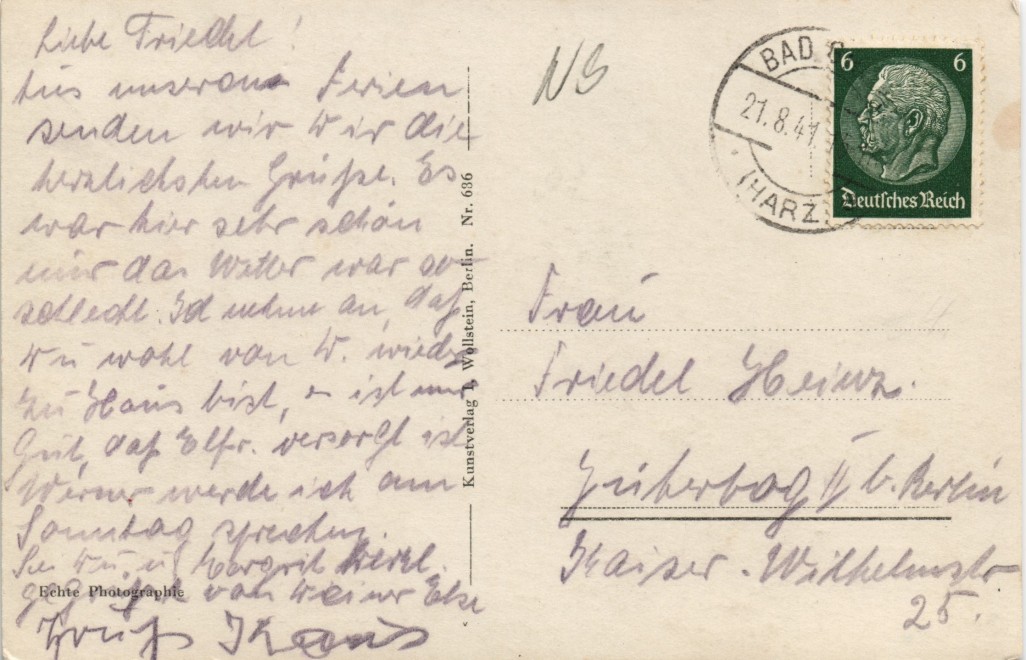 Liebe Friedel!
Aus unseren Ferien
senden wir Dir die
herzlichsten Grüße. Es
war hier sehr schön
nur das Wetter war so
schlecht. Ich nehme an, daß
Du wohl von W. wieder
zu Haus bist, es ist nur
Gut, daß Elfr. versorgt ist
Werner werde ich am
Sonntag sprechen.
Sei Du u. Margrit herzl.
gegrüßt von Deiner Else
Gruß
Echte Photographie
Kunstverlag J. Wollstein, Berlin. Nr. 686
NS
BAD
21.8.41
(HARZ
6 6
Deutsches Reich
Frau
Friedel Heinz.
Jüterbog II b. Berlin
Kaiser-Wilhelmstr
25.